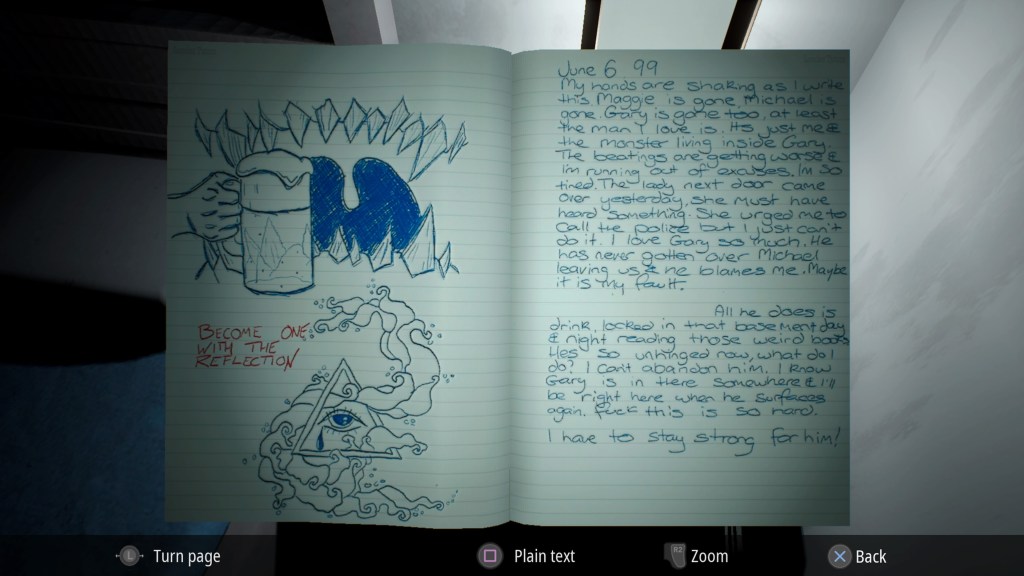 BECOME ONE
WITH THE
REFLECTION
June 6 99
My hands are shaking as I write
this Maggie is gone, Michael is
gone. Gary is gone too, at least
the man I love is. Its just me &
the monster living inside Gary.
The beatings are getting worse &
i'm running out of excuses. Im so
tired. The lady next door came
over yesterday, she must have
heard something. She urged me to
call the police but I just can't
do it. I love Gary so much. He
has never gotten over Michael
leaving us & he blames me. Maybe
it is my fault.
All he does is
drink, locked in that basement day
& night reading those weird books
Hes so unhinged now, what do I
do? I cant abandon him. I know
Gary is in there somewhere & I'll
be right here when he surfaces
again. Fuck this is so hard.
I have to stay strong for him!
L
Turn page
Plain text
R2
Zoom
Back